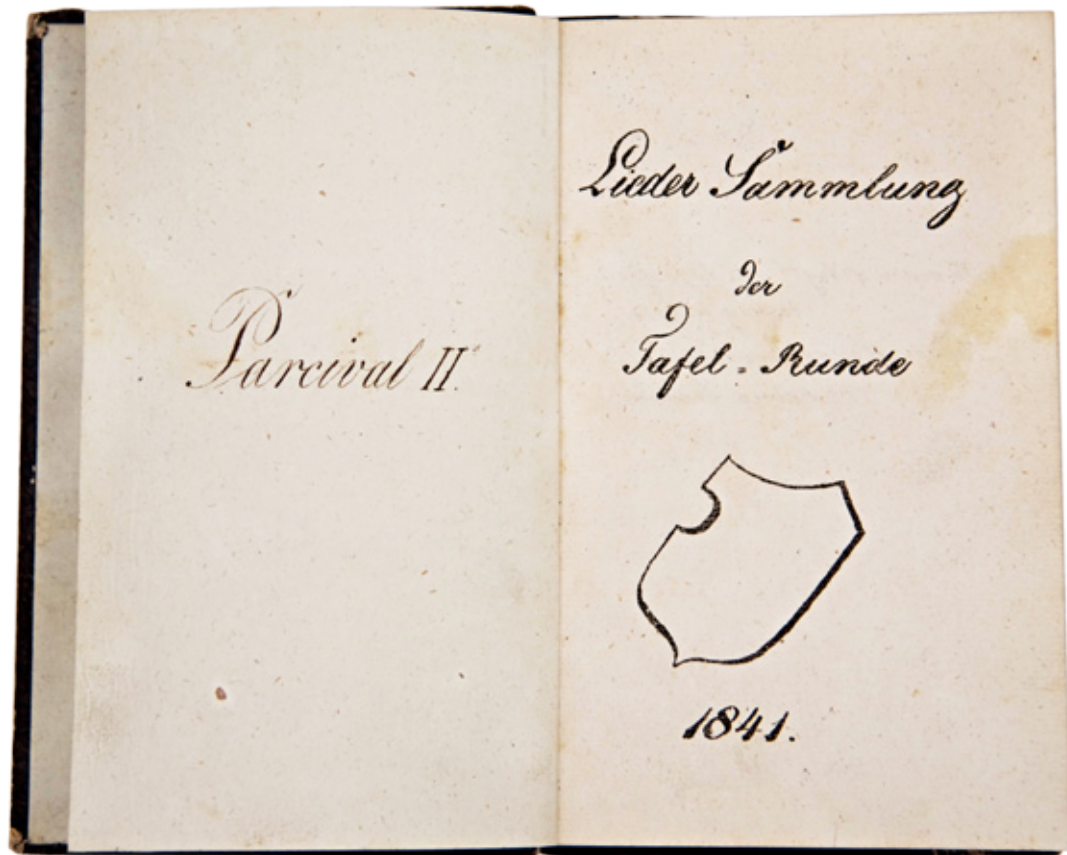 Parcival II.
Lieder Sammlung
der
Tafel-Runde
1841.